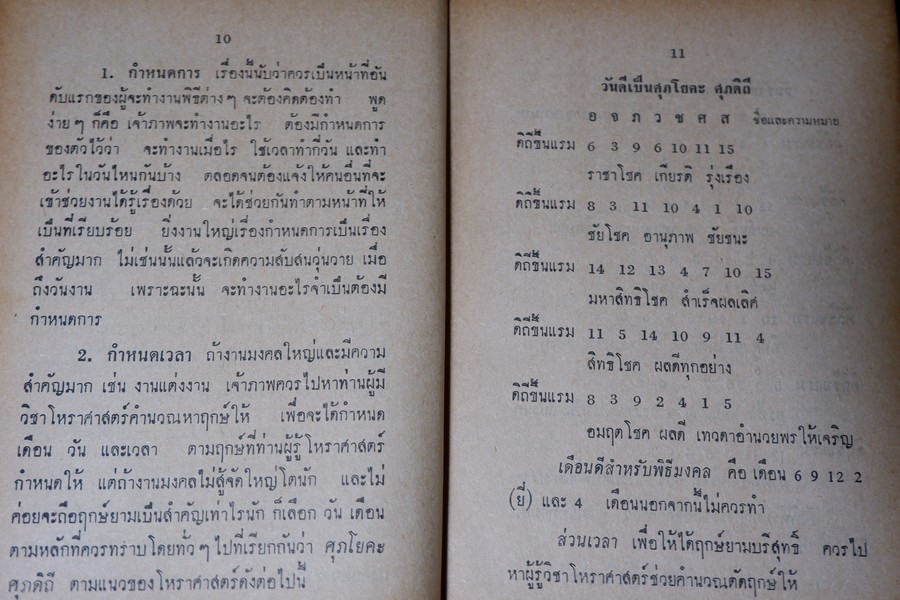 10
1. กำหนดการ เรื่องนี้นับว่าควรเป็นหน้าที่อัน
ดับแรกของผู้จะทำงานพิธีต่างๆ จะต้องคิดต้องทำ พูด
ง่ายๆ ก็คือ เจ้าภาพจะทำงานอะไร ต้องมีกำหนดการ
ของตัวไว้ว่า จะทำงานเมื่อไร ใช้เวลาทำกี่วัน และทำ
อะไรในวันไหนกันบ้าง ตลอดจนต้องแจ้งให้คนอื่นที่จะ
เข้าช่วยงานได้รู้เรื่องด้วย จะได้ช่วยกันทำตามหน้าที่ให้
เป็นที่เรียบร้อย ยิ่งงานใหญ่เรื่องกำหนดการเป็นเรื่อง
สำคัญมาก ไม่เช่นนั้นแล้วจะเกิดความสับสนวุ่นวาย เมื่อ
ถึงวันงาน เพราะฉะนั้น จะทำงานอะไรจำเป็นต้องมี
กำหนดการ
2. กำหนดเวลา ถ้างานมงคลใหญ่และมีความ
สำคัญมาก เช่น งานแต่งงาน เจ้าภาพควรไปหาท่านผู้มี
วิชาโหราศาสตร์คำนวณหาฤกษ์ให้ เพื่อจะได้กำหนด
เดือน วัน และเวลา ตามฤกษ์ที่ท่านผู้รู้โหราศาสตร์
กำหนดให้ แต่ถ้างานมงคลไม่สู้จัดใหญ่โตนัก และไม่
ค่อยจะถือฤกษ์ยามเป็นสำคัญเท่าไรนัก ก็เลือก วัน เดือน
ตามหลักที่ควรทราบโดยทั่วๆ ไปที่เรียกกันว่า ศุภโยคะ
ศุภดิถี ตามแนวของโหราศาสตร์ดังต่อไปนี้
11
วันดีเป็นศุภโยคะ ศุภดิถี
อ จ ภ ว ช ศ ส ชื่อและความหมาย
ดิถีขึ้นแรม 6 3 9 6 10 11 15
ราชาโชค เกียรติ รุ่งเรือง
ดิถีขึ้นแรม 8 3 11 10 4 1 10
ชัยโชค อานุภาพ ชัยชนะ
ดิถีขึ้นแรม 14 12 13 4 7 10 15
มหาสิทธิโชค สำเร็จผลเลิศ
ดิถีขึ้นแรม 11 5 14 10 9 11 4
สิทธิโชค ผลดีทุกอย่าง
ดิถีขึ้นแรม 8 3 9 2 4 1 5
อมฤตโชค ผลดี เทวดาอำนวยพรให้เจริญ
เดือนดีสำหรับพิธีมงคล คือ เดือน 6 9 12 2
(ยี่) และ 4 เดือนนอกจากนี้ไม่ควรทำ
ส่วนเวลา เพื่อให้ได้ฤกษ์ยามบริสุทธิ์ ควรไป
หาผู้รู้วิชาโหราศาสตร์ช่วยคำนวณตัดฤกษ์ให้